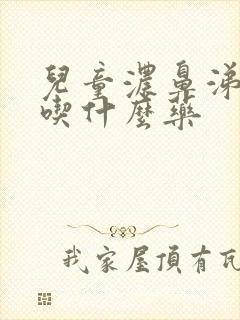 兒童濃鼻涕
喫什麼藥
我家屋頂有瓦